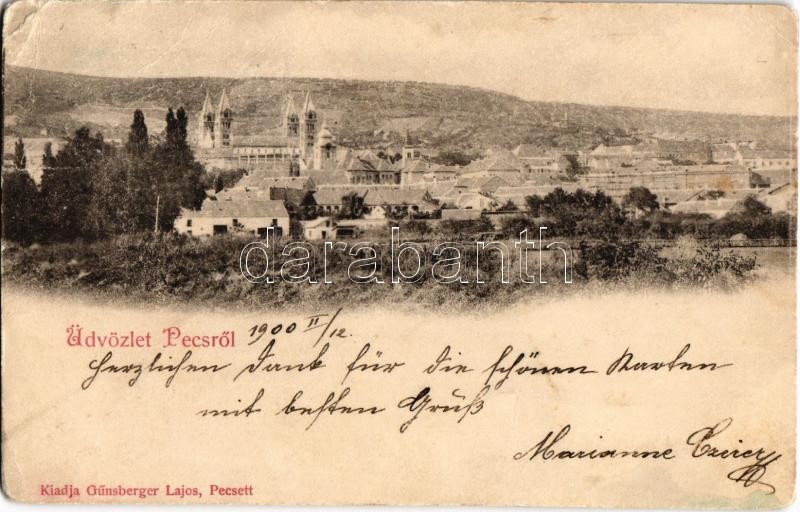 darabanth
Üdvözlet Pecsről 1900 II/12.
herzlichen Dank für die schönen Karten
mit besten Gruß
Marianne
Kiadja Günsberger Lajos, Pecsett